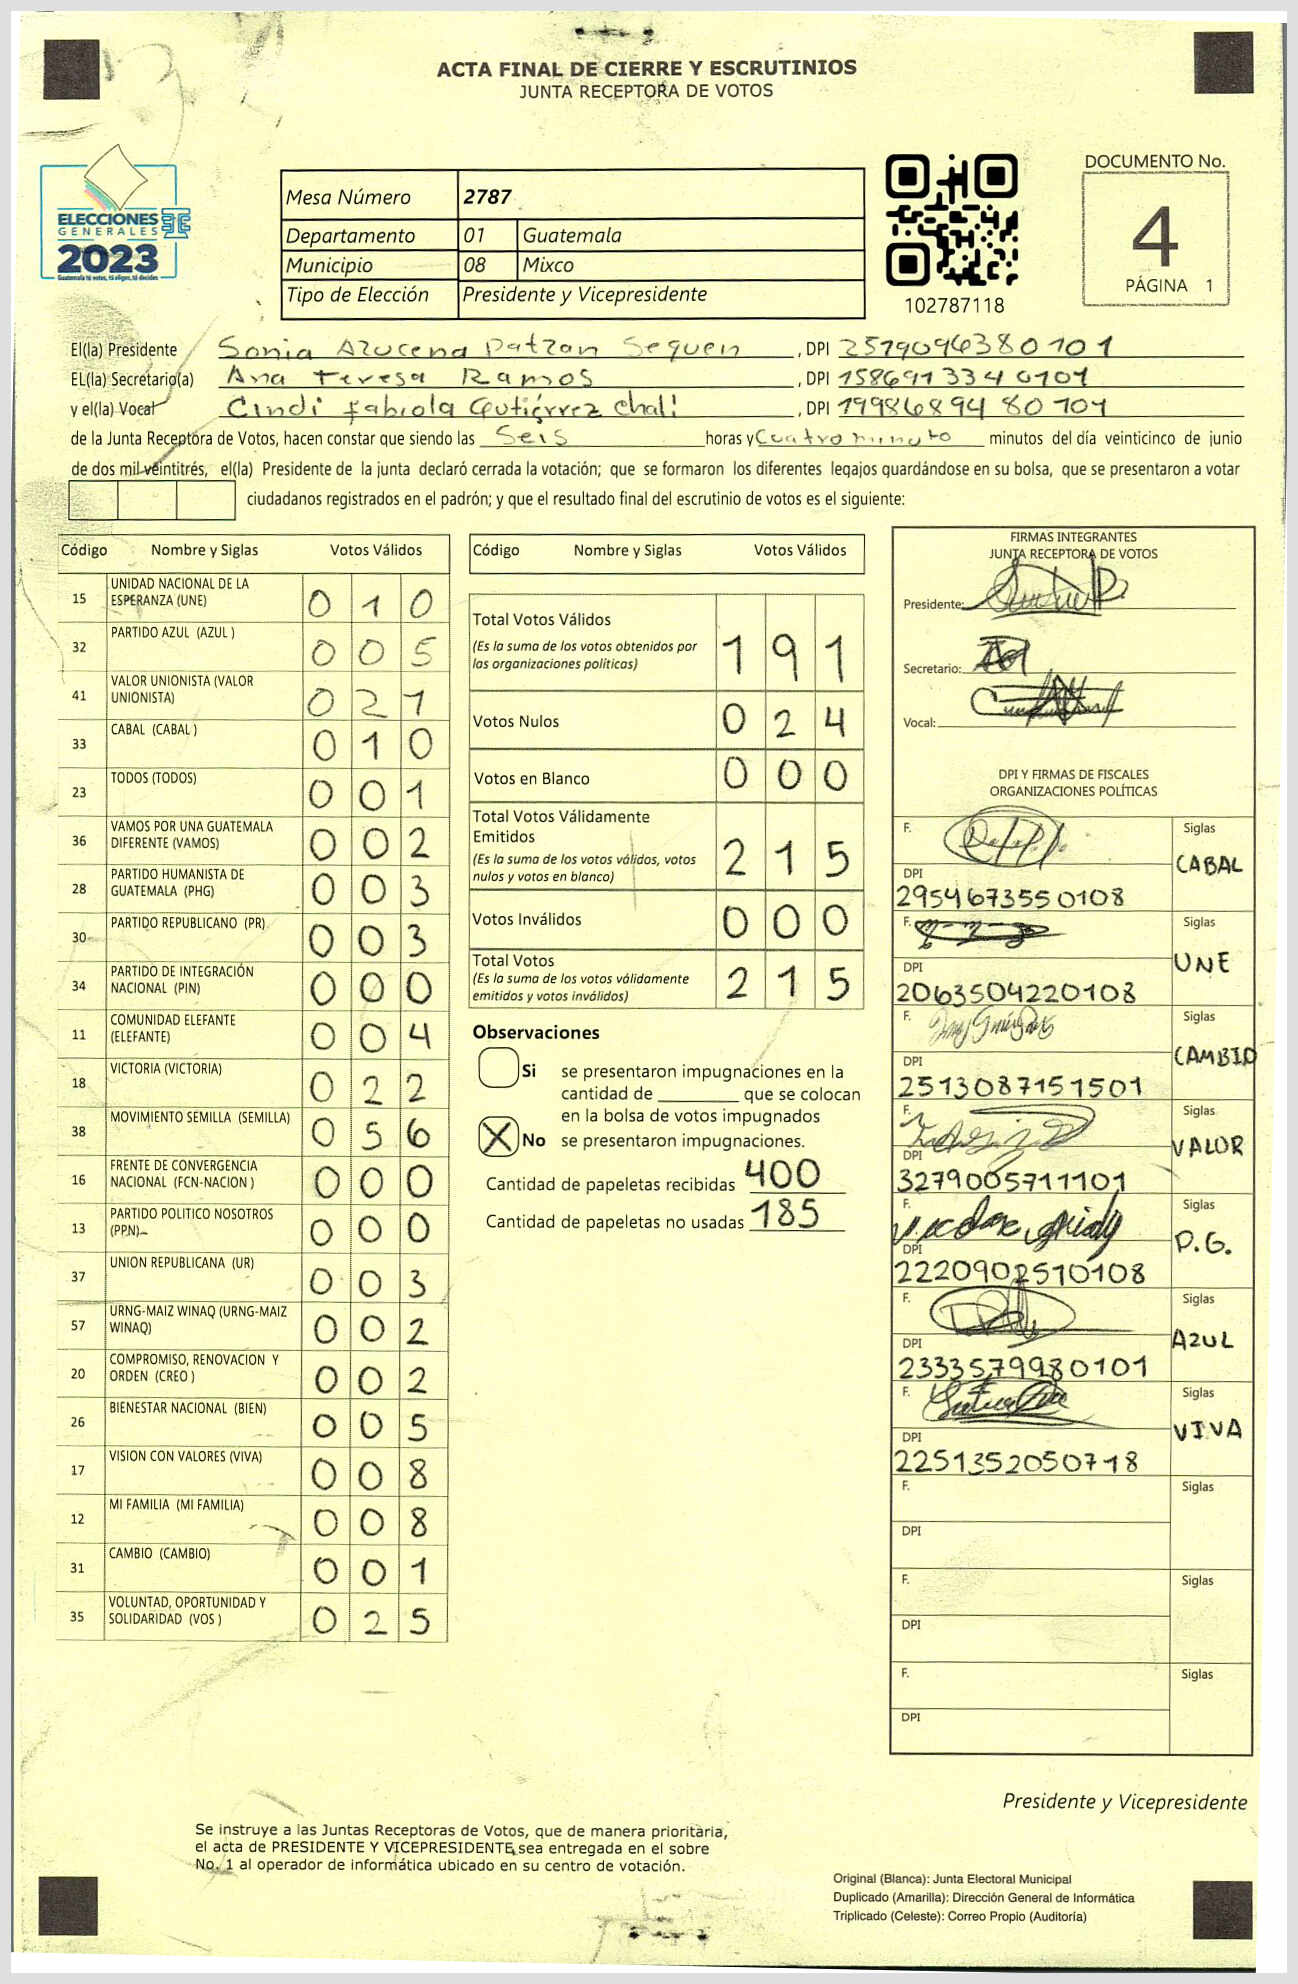 ACTA FINAL DE CIERRE Y ESCRUTINIOS
JUNTA RECEPTORA DE VOTOS
ELECCIONES
GENERALES
2023
Guatemala tú votas, tú eliges, tú decides
Mesa Número 2787
Departamento 01 Guatemala
Municipio 08 Mixco
Tipo de Elección Presidente y Vicepresidente
102787118
DOCUMENTO No.
4
PÁGINA 1
El(la) Presidente Sonia Azucena Patzan Sequen , DPI 2579096380101
EL(la) Secretario(a) Ana Teresa Ramos , DPI 1586913340101
y el(la) Vocal Cindi Fabiola Gutiérrez Chali , DPI 1998689480101
de la Junta Receptora de Votos, hacen constar que siendo las Seis horas y Cuatro minuto minutos del día veinticinco de junio
de dos mil veintitrés, el(la) Presidente de la junta declaró cerrada la votación; que se formaron los diferentes legajos guardándose en su bolsa, que se presentaron a votar
ciudadanos registrados en el padrón; y que el resultado final del escrutinio de votos es el siguiente:
Código Nombre y Siglas Votos Válidos
15 UNIDAD NACIONAL DE LA ESPERANZA (UNE) 0 1 0
32 PARTIDO AZUL (AZUL ) 0 0 5
41 VALOR UNIONISTA (VALOR UNIONISTA) 0 2 1
33 CABAL (CABAL ) 0 1 0
23 TODOS (TODOS) 0 0 1
36 VAMOS POR UNA GUATEMALA DIFERENTE (VAMOS) 0 0 2
28 PARTIDO HUMANISTA DE GUATEMALA (PHG) 0 0 3
30 PARTIDO REPUBLICANO (PR) 0 0 3
34 PARTIDO DE INTEGRACIÓN NACIONAL (PIN) 0 0 0
11 COMUNIDAD ELEFANTE (ELEFANTE) 0 0 4
18 VICTORIA (VICTORIA) 0 2 2
38 MOVIMIENTO SEMILLA (SEMILLA) 0 5 6
16 FRENTE DE CONVERGENCIA NACIONAL (FCN-NACION ) 0 0 0
13 PARTIDO POLITICO NOSOTROS (PPN) 0 0 0
37 UNION REPUBLICANA (UR) 0 0 3
57 URNG-MAIZ WINAQ (URNG-MAIZ WINAQ) 0 0 2
20 COMPROMISO, RENOVACION Y ORDEN (CREO ) 0 0 2
26 BIENESTAR NACIONAL (BIEN) 0 0 5
17 VISION CON VALORES (VIVA) 0 0 8
12 MI FAMILIA (MI FAMILIA) 0 0 8
31 CAMBIO (CAMBIO) 0 0 1
35 VOLUNTAD, OPORTUNIDAD Y SOLIDARIDAD (VOS ) 0 2 5
Código Nombre y Siglas Votos Válidos
Total Votos Válidos
(Es la suma de los votos obtenidos por
las organizaciones políticas) 1 9 1
Votos Nulos 0 2 4
Votos en Blanco 0 0 0
Total Votos Válidamente
Emitidos
(Es la suma de los votos válidos, votos
nulos y votos en blanco) 2 1 5
Votos Inválidos 0 0 0
Total Votos
(Es la suma de los votos válidamente
emitidos y votos inválidos) 2 1 5
Observaciones
Si se presentaron impugnaciones en la
cantidad de ________ que se colocan
en la bolsa de votos impugnados
X No se presentaron impugnaciones.
Cantidad de papeletas recibidas 400
Cantidad de papeletas no usadas 185
FIRMAS INTEGRANTES
JUNTA RECEPTORA DE VOTOS
Presidente:
Secretario:
Vocal:
DPI Y FIRMAS DE FISCALES
ORGANIZACIONES POLÍTICAS
F. Siglas
CABAL
DPI
2954673550108
F. Siglas
UNE
DPI
2063504220108
F. Siglas
CAMBIO
DPI
2513087151501
F. Siglas
VALOR
DPI
3279005711101
F. Siglas
P.G.
DPI
2220902510108
F. Siglas
AZUL
DPI
2333579980101
F. Siglas
VIVA
DPI
2251352050718
F. Siglas
DPI
F. Siglas
DPI
F. Siglas
DPI
Presidente y Vicepresidente
Se instruye a las Juntas Receptoras de Votos, que de manera prioritaria,
el acta de PRESIDENTE Y VICEPRESIDENTE sea entregada en el sobre
No. 1 al operador de informática ubicado en su centro de votación.
Original (Blanca): Junta Electoral Municipal
Duplicado (Amarilla): Dirección General de Informática
Triplicado (Celeste): Correo Propio (Auditoría)